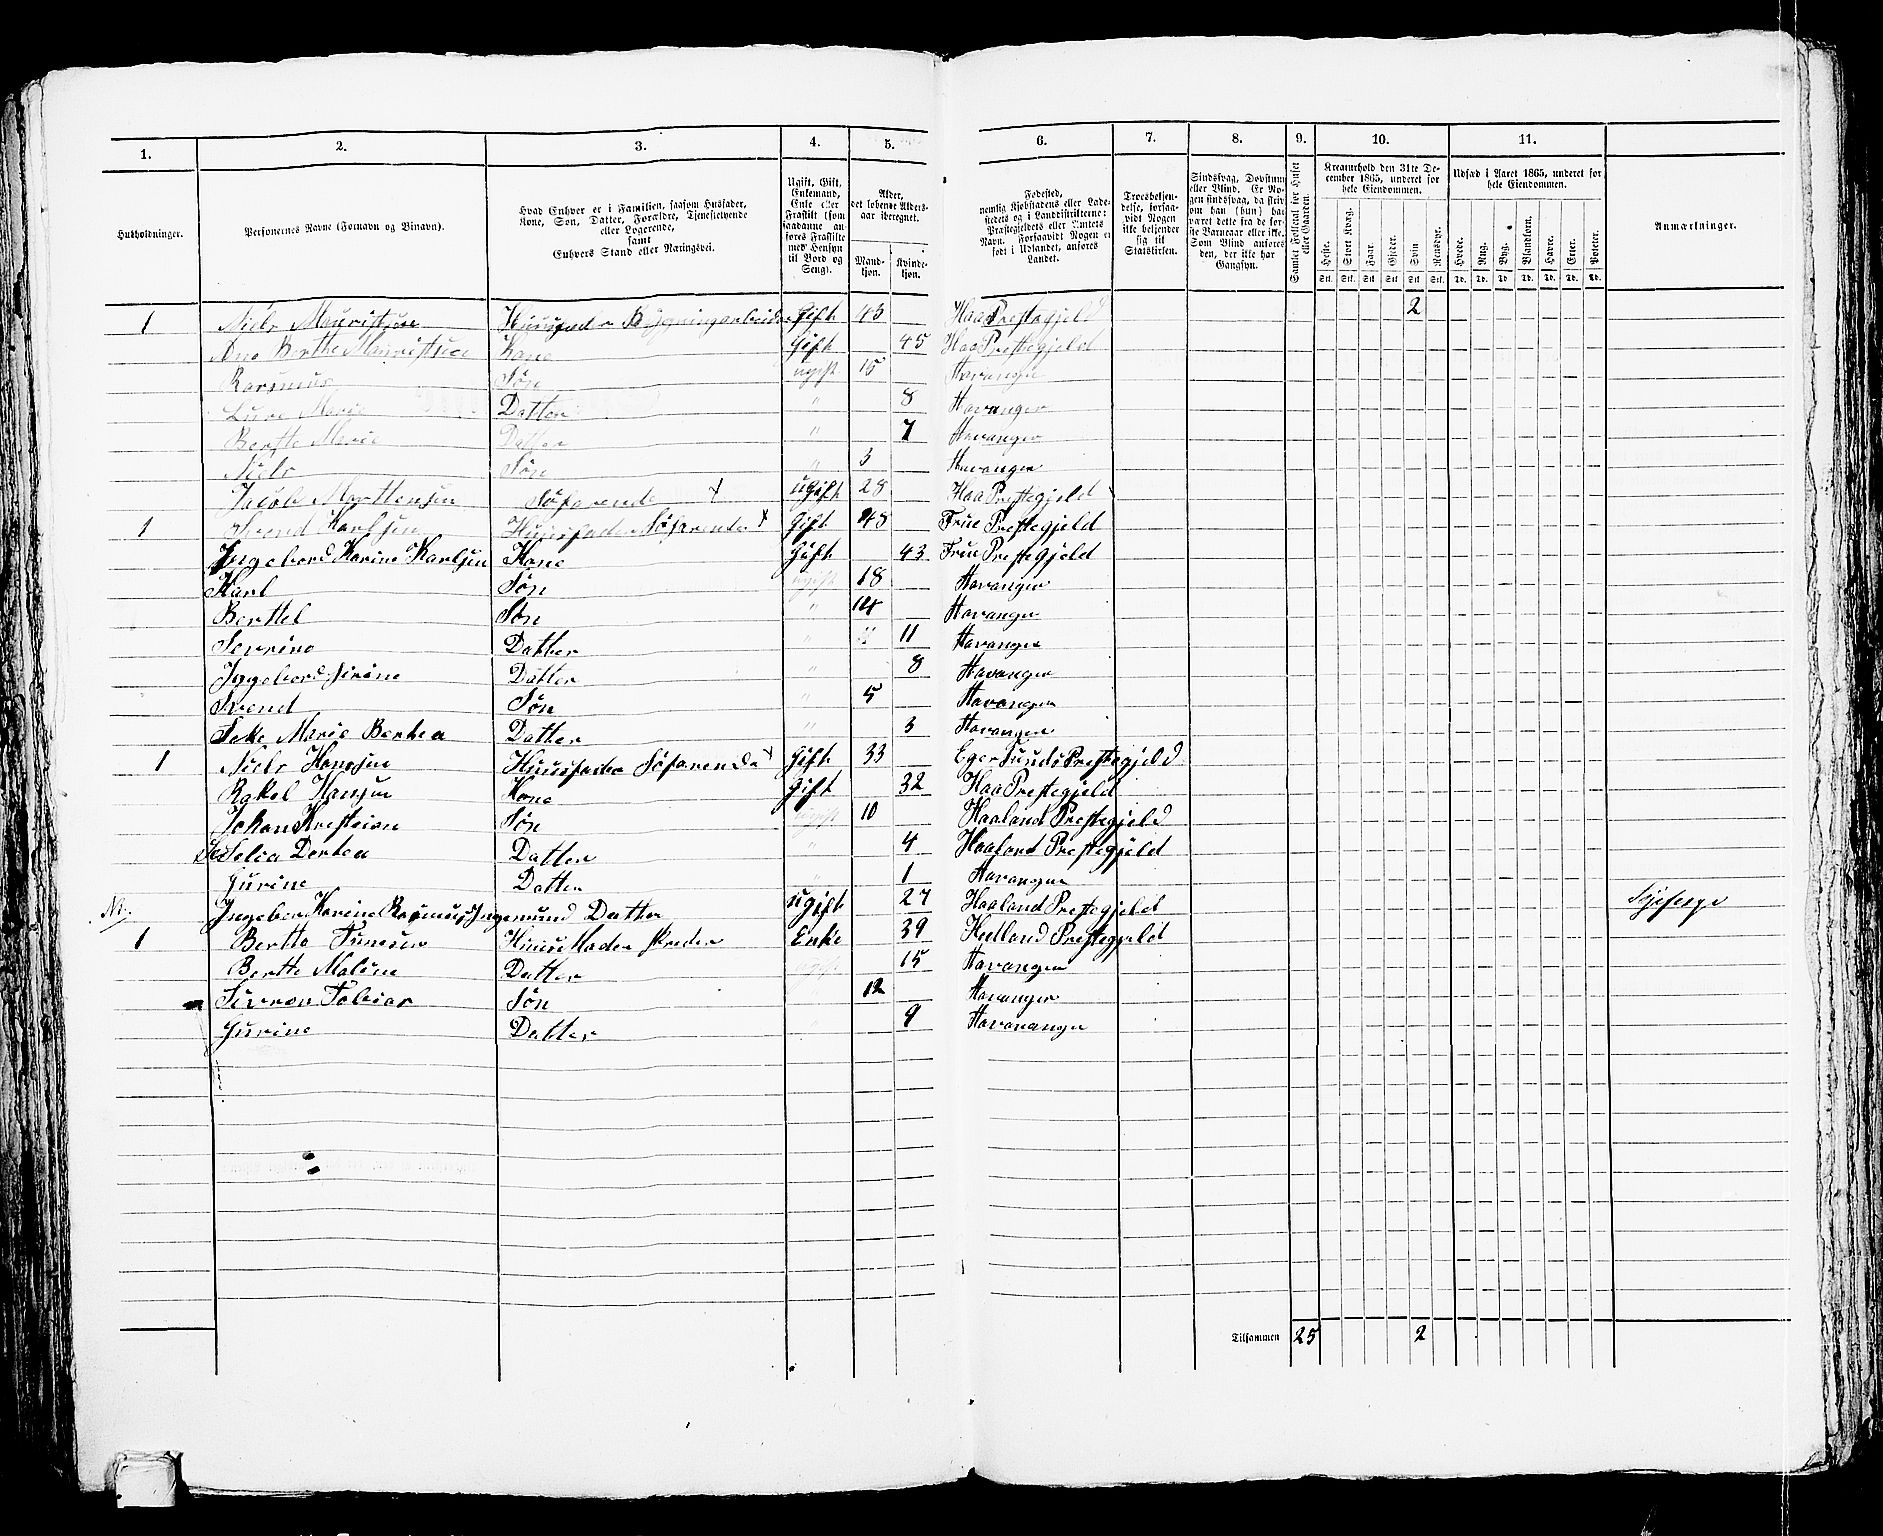 1. 2. 3. 4. 5. 6. 7. 8. 9. 10. 11.
Husholdninger.
Personernes Navne (Fornavn og Binavn).
Hvad Enhver er i Familien, saasom Husfader, Kone, Søn, Datter, Forældre, Tjenestetyende eller Logerende, samt Enhvers Stand eller Næringsvei.
Ugift, Gift, Enkemand, Enke eller Fraskilt (som saadanne anføres Fraskilte med Hensyn til Bord og Seng).
Alder, det løbende Alders-aar iberegnet.
Mand-kjøn. Kvinde-kjøn.
Fødested, nemlig Kjøbstadens eller Ladestedets og i Landdistrikterne: Præstegjeldets eller Amtets Navn. Forsaavidt Nogen er født i Udlandet, anføres Landet.
Troesbekjendelse, forsaavidt Nogen ikke bekjender sig til Statskirken.
Sindssvag, Døvstum eller Blind. Er Nogen sindssvag, da skriv om han (hun) har været dette fra de første Barneaar eller ikke. Som Blind anføres den, der ikke har Gangsyn.
Samlet Folketal for Huset eller Gaarden.
Kreaturhold den 31te December 1865, underet for hele Eiendommen.
Heste. Stort Kvæg. Faar. Gjeder. Svin Rensdyr.
Stk. Stk. Stk. Stk. Stk. Stk.
Udsæd i Aaret 1865, underet for hele Eiendommen.
Hvede. Rug. Byg. Blandkorn. Havre. Erter. Poteter.
Td. Td. Td. Td. Td. Td. Td.
Anmærkninger.
1 Niels Mauritsen Huusfader Bygningarbeider Gift 43 Haa Prestegjeld 2
Ane Berthe Mauritsen Kone Gift 45 Haa Prestegjeld
Rasmus Søn ugift 15 Stavanger
Marie Datter " 8 Stavanger
Berthe Marie Datter " 7 Stavanger
Niels Søn " 3 Stavanger
Jacob Marthensen Søfarende x ugift 28 Haa Prestegjeld
1 Svend Karlsen Huusfader Søfarende x Gift 48 Frue Prestegjeld
Ingebord Karine Karlsen Kone Gift 43 Frue Prestegjeld
Karl Søn ugift 18 Stavanger
Berthel Søn " 14 Stavanger
Severine Datter " 11 Stavanger
Ingebord Sirine Datter " 8 Stavanger
Svend Søn " 5 Stavanger
Marie Bertea Datter " 3 Stavanger
1 Niels Hansen Huusfader Søfarende x Gift 33 Eger Sunds Prestegjeld
Rakel Hansen Kone Gift 32 Haa Prestegjeld
Johan Krestian Søn ugift 10 Haaland Prestegjeld
Selia Dortea Datter " 4 Haaland Prestegjeld
Gurine Datter " 1 Stavanger
Karine Rasmus Datter ugift 27 Haaland Prestegjeld
1 Berthe Huus Moder Enke 39 Hetland Prestegjeld
Berthe Maline Datter ugift 15 Stavanger
Tobias Søn 12 Stavanger
Gurine Datter " 9 Stavavanger
Tilsammen 25 2